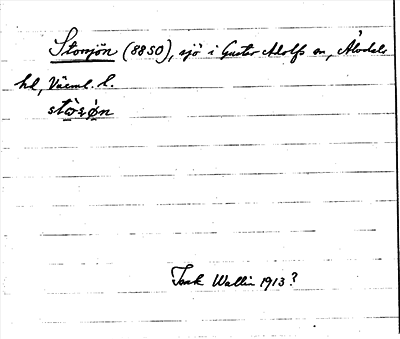 Storsjön (8850), sjö i Gustav Adolfs sn, Älvdals
hd, Värml. l.
stò̀sø̀n
Isak Wallin 1913?